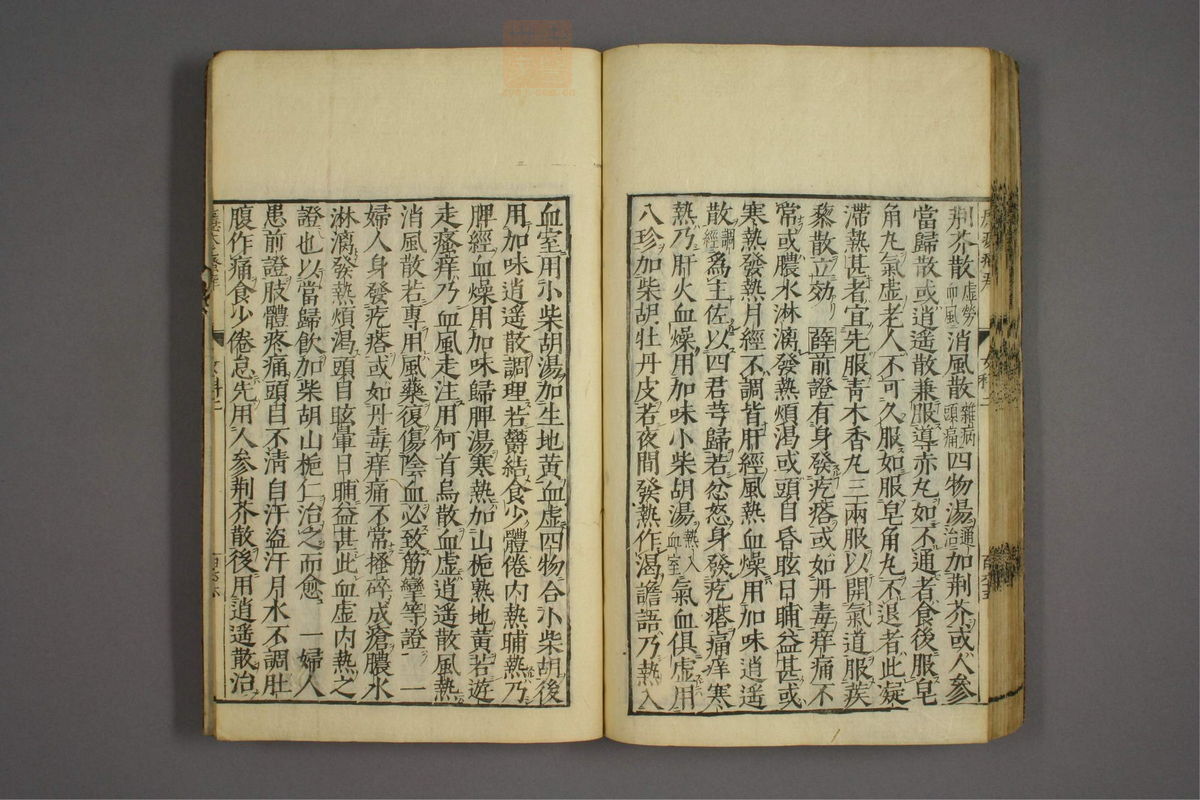 荆芥散虛勞血風消風散雜病頭痛四物湯通治加荆芥或人參
當歸散或逍遥散兼服導赤丸如不通者食後服皂
角丸氣虛老人不可久服如服皂角丸不退者此凝
滯熱甚者宜先服青木香丸三兩服以開氣道服蒺
藜散立効 薛前證有身發疙瘩或如丹毒痒痛不
常或膿水淋漓發熱煩渴或頭目昏眩日晡益甚或
寒熱發熱月經不調皆肝經風熱血燥用加味逍遥
散調經為主佐以四君芎歸若忿怒身發疙瘩痛痒寒
熱乃肝火血燥用加味小柴胡湯熱入血室氣血俱虛用
八珍加柴胡牡丹皮若夜間發熱作渴譫語乃熱入
血室用小柴胡湯加生地黄血虛四物合小柴胡後
用加味逍遥散調理若欝結食少體倦内熱晡熱乃
脾經血燥用加味歸脾湯寒熱加山梔熟地黄若遊
走瘙痒乃血風走注用何首烏散血虛逍遥散風熱
消風散若專用風藥復傷陰血必致筋攣等證 一
婦人身發疙瘩或如丹毒痒痛不常搔碎成瘡膿水
淋漓發熱煩渴頭目眩暈日晡益甚此血虛内熱之
證也以當歸飲加柴胡山梔仁治之而愈 一婦人
患前證肢體疼痛頭目不清自汗盜汗月水不調肚
腹作痛食少倦怠先用人參荆芥散後用逍遥散治
女科二